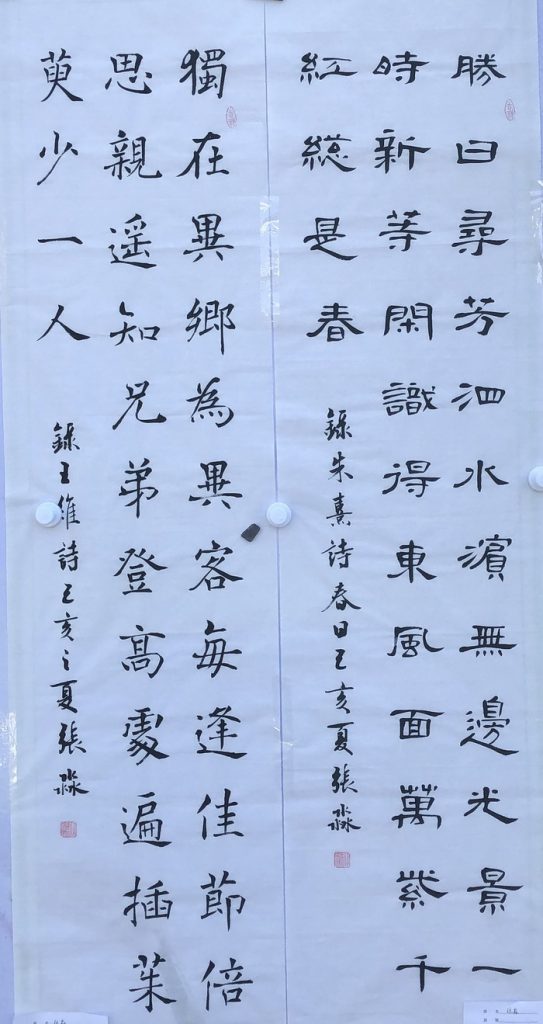 勝日尋芳泗水濱無邊光景一
時新等閑識得東風面萬紫千
紅緫是春
錄朱熹詩春日己亥夏張淼
獨在異鄉為異客每逢佳節倍
思親遥知兄弟登髙處遍插茱
萸少一人
錄王維詩己亥之夏張淼